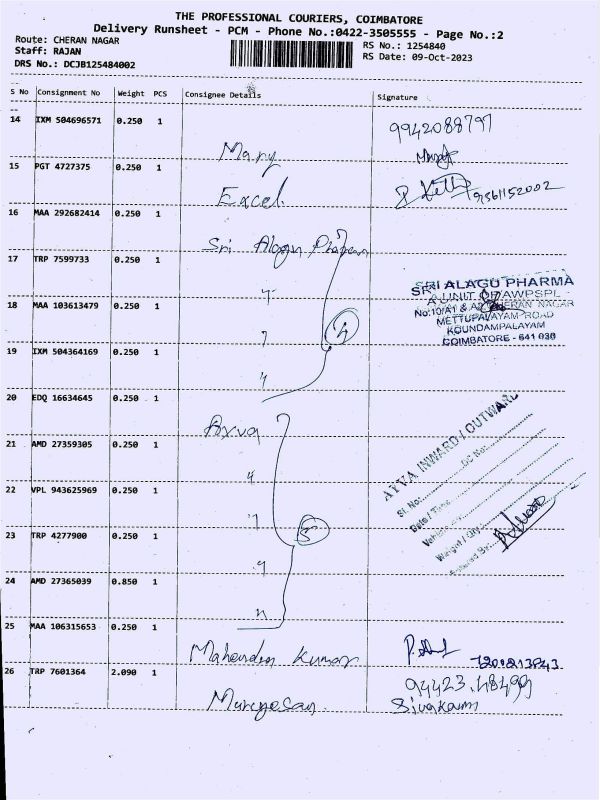 THE PROFESSIONAL COURIERS, COIMBATORE
Delivery Runsheet - PCM - Phone No.:0422-3505555 - Page No.:2
Route: CHERAN NAGAR
Staff: RAJAN
DRS No.: DCJB125484002
RS No.: 1254840
RS Date: 09-Oct-2023
S No Consignment No Weight PCS Consignee Details Signature
14 IXM 504696571 0.250 1 9942088797
Mary
15 PGT 4727375 0.250 1
Excel
16 MAA 292682414 0.250 1
Sri Alagu
17 TRP 7599733 0.250 1
"
SRI ALAGU PHARMA
A UNIT OF AWPSPL
CHERAN NAGAR
METTUPALAYAM ROAD
KOUNDAMPALAYAM
COIMBATORE - 641 030
18 MAA 103613479 0.250 1
" 4
19 IXM 504364169 0.250 1
"
20 EDQ 16634645 0.250 1
Ayva
21 AMD 27359305 0.250 1
"
AYVA INWARD / OUTWARD
Sl. No:
DC No:
Date / Time
Weight / Qty
22 VPL 943625969 0.250 1
"
23 TRP 4277900 0.250 1
" 5
24 AMD 27365039 0.850 1
"
25 MAA 106315653 0.250 1
Mahendra Kumar
26 TRP 7601364 2.090 1
Murugesan Sivakumar